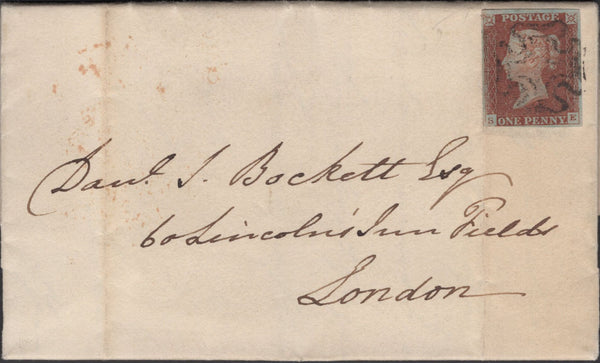 POSTAGE
S ONE PENNY E
Danl. S. Bockett Esq
60 Lincoln's Inn Fields
London